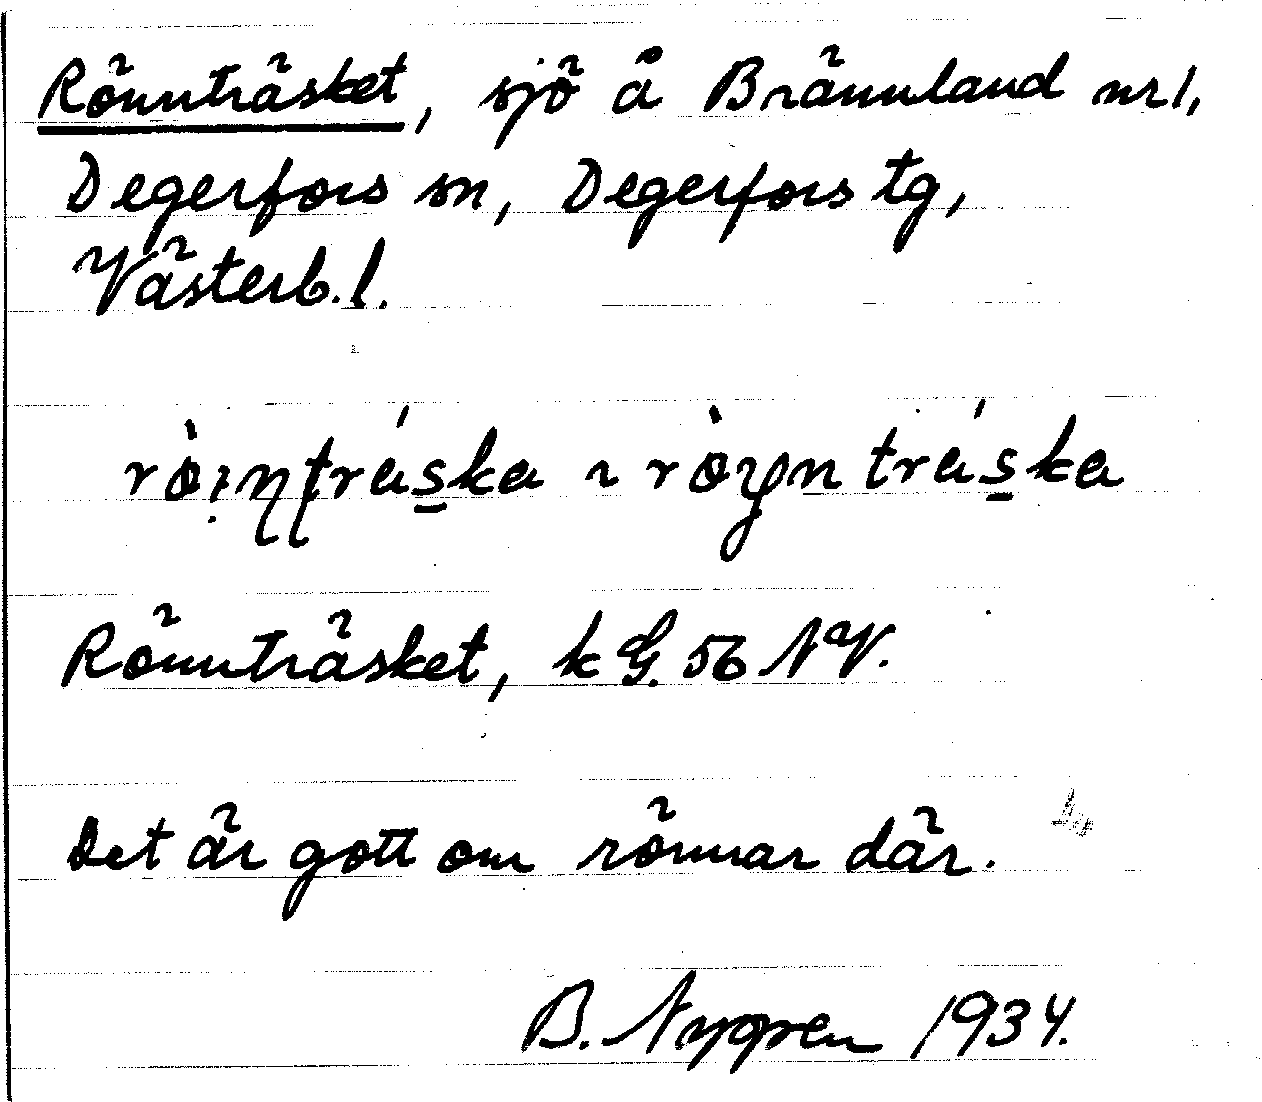 Rönnträsket, sjö å Brännland nr 1,
Degerfors sn, Degerfors tg,
Västerb. l.
Rönnträsket, k G. 56 NV.
Det är gott om rönnar där.
B. Nygren 1934.